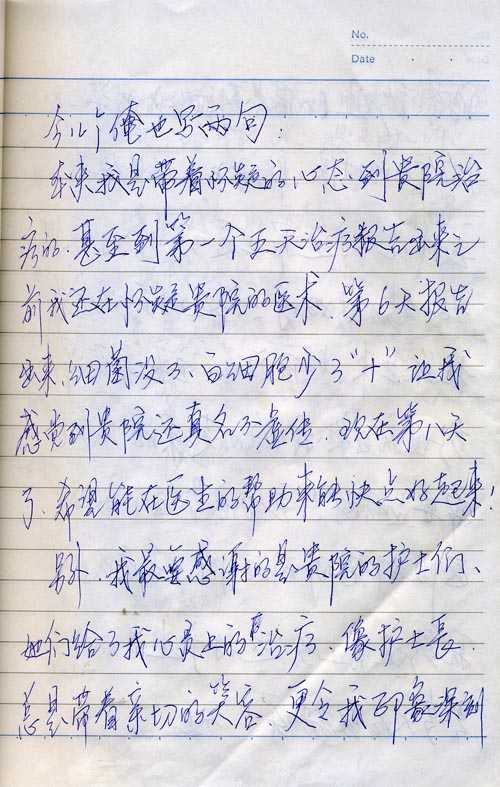 No.
Date
今儿个俺也写两句:
本来我是带着怀疑的心态到贵院治
病的.甚至到第一个五天治病报告出来之
前我还在怀疑贵院的医术.第6天报告
出来,细菌没了、白细胞少了"+"让我
感觉到贵院还真名不虚传.现在第八天
了、希望能在医生的帮助来能快点好起来!
另外.我最要感谢的是贵院的护士们、
她们给了我心灵上的治疗.像护士長.
总是带着亲切的笑容.更令我印象深刻